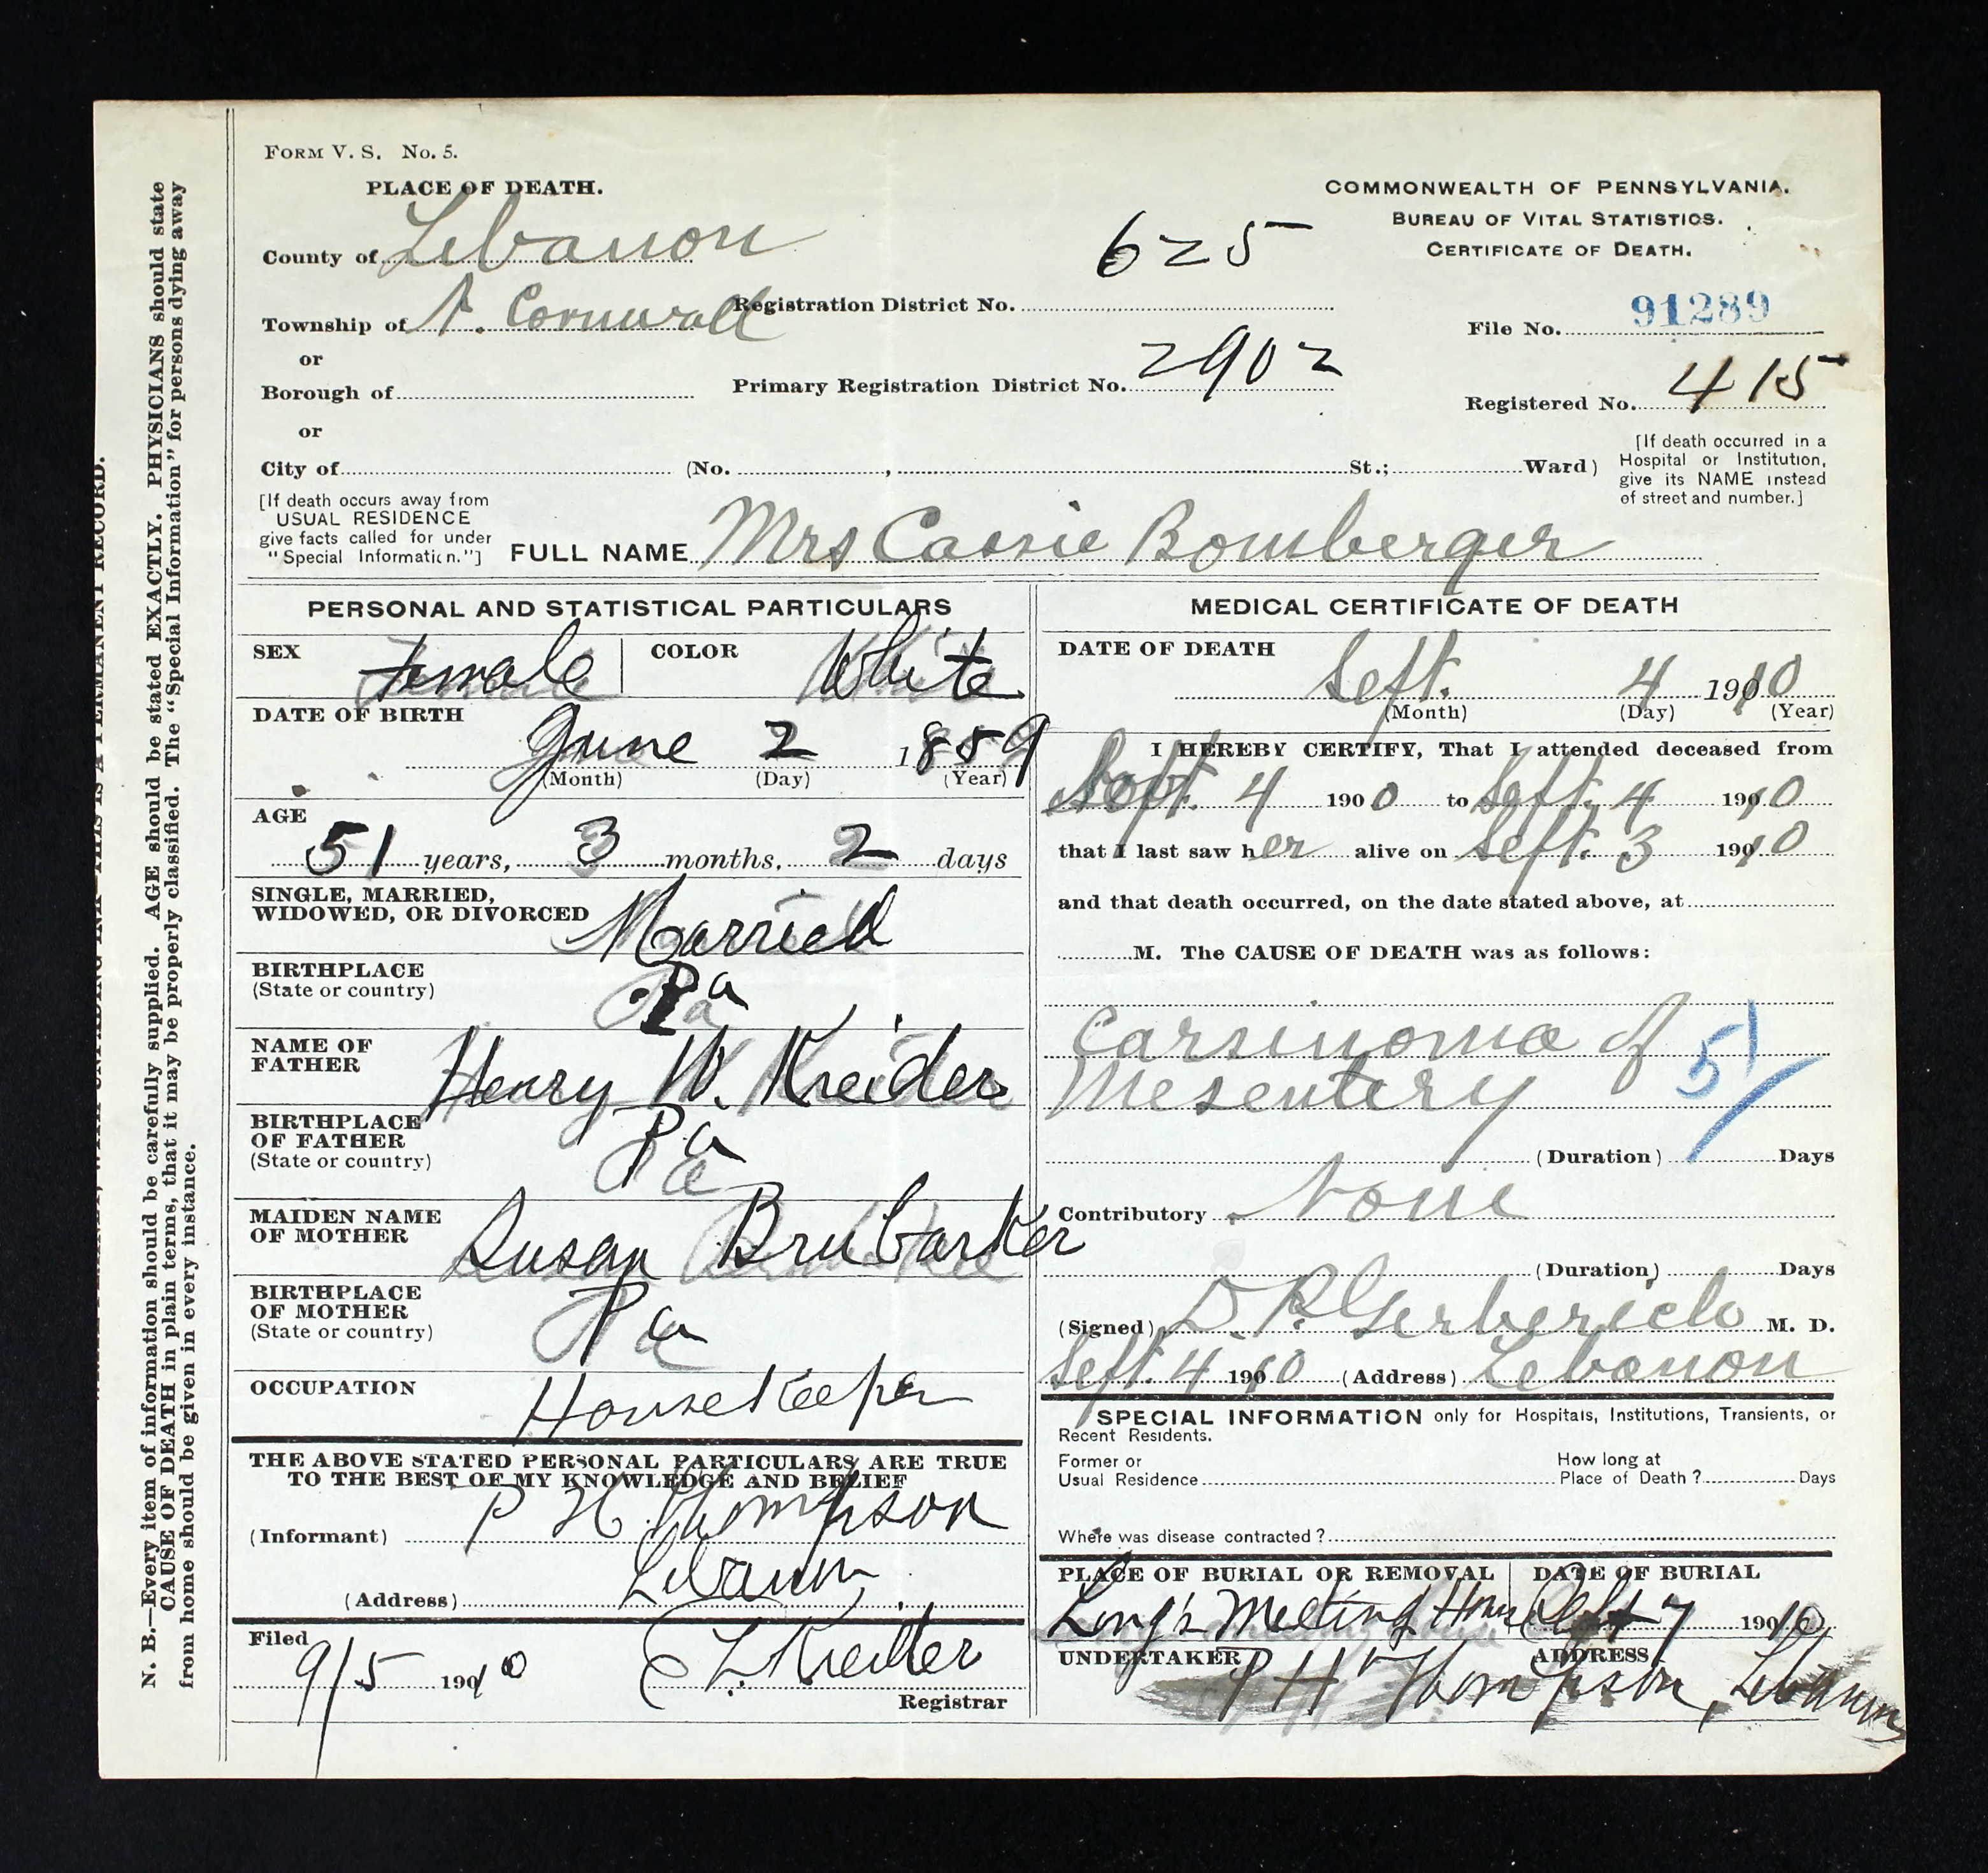 FORM V. S. No. 5.
PLACE OF DEATH.
County of Lebanon
Township of N. Cornwall
or
Borough of
or
City of (No. , St.; Ward)
[If death occurs away from
USUAL RESIDENCE
give facts called for under
"Special Information."]
Registration District No. 625
Primary Registration District No. 2902
COMMONWEALTH OF PENNSYLVANIA.
BUREAU OF VITAL STATISTICS.
CERTIFICATE OF DEATH.
File No. 91289
Registered No. 415
[If death occurred in a
Hospital or Institution,
give its NAME instead
of street and number.]
FULL NAME Mrs Cassie Bomberger
PERSONAL AND STATISTICAL PARTICULARS
SEX Female COLOR White
DATE OF BIRTH
June 2 1859
(Month) (Day) (Year)
AGE
51 years, 3 months, 2 days
SINGLE, MARRIED,
WIDOWED, OR DIVORCED Married
BIRTHPLACE
(State or country) Pa
NAME OF
FATHER Henry W. Kreider
BIRTHPLACE
OF FATHER
(State or country) Pa
MAIDEN NAME
OF MOTHER Susan Brubarker
BIRTHPLACE
OF MOTHER
(State or country) Pa
OCCUPATION Housekeeper
THE ABOVE STATED PERSONAL PARTICULARS ARE TRUE
TO THE BEST OF MY KNOWLEDGE AND BELIEF
(Informant) P H Thompson
(Address) Lebanon
Filed 9/5 1910
Registrar
MEDICAL CERTIFICATE OF DEATH
DATE OF DEATH
Sept. 4 1910
(Month) (Day) (Year)
I HEREBY CERTIFY, That I attended deceased from
Sept. 4 1900 to Sept. 4 1910
that I last saw her alive on Sept. 3 1910
and that death occurred, on the date stated above, at
M. The CAUSE OF DEATH was as follows:
Carsinoma of
Mesentery 51
(Duration) Days
Contributory None
(Duration) Days
(Signed) D. P. Gerberich M. D.
Sept. 4 1910 (Address) Lebanon
SPECIAL INFORMATION only for Hospitals, Institutions, Transients, or
Recent Residents.
Former or
Usual Residence
How long at
Place of Death ? Days
Where was disease contracted ?
PLACE OF BURIAL OR REMOVAL
Long's Meeting House
DATE OF BURIAL
Sept 7 1910
UNDERTAKER
P H Thompson,
ADDRESS
Lebanon
N. B.—Every item of information should be carefully supplied. AGE should be stated EXACTLY. PHYSICIANS should state
CAUSE OF DEATH in plain terms, that it may be properly classified. The "Special Information" for persons dying away
from home should be given in every instance.